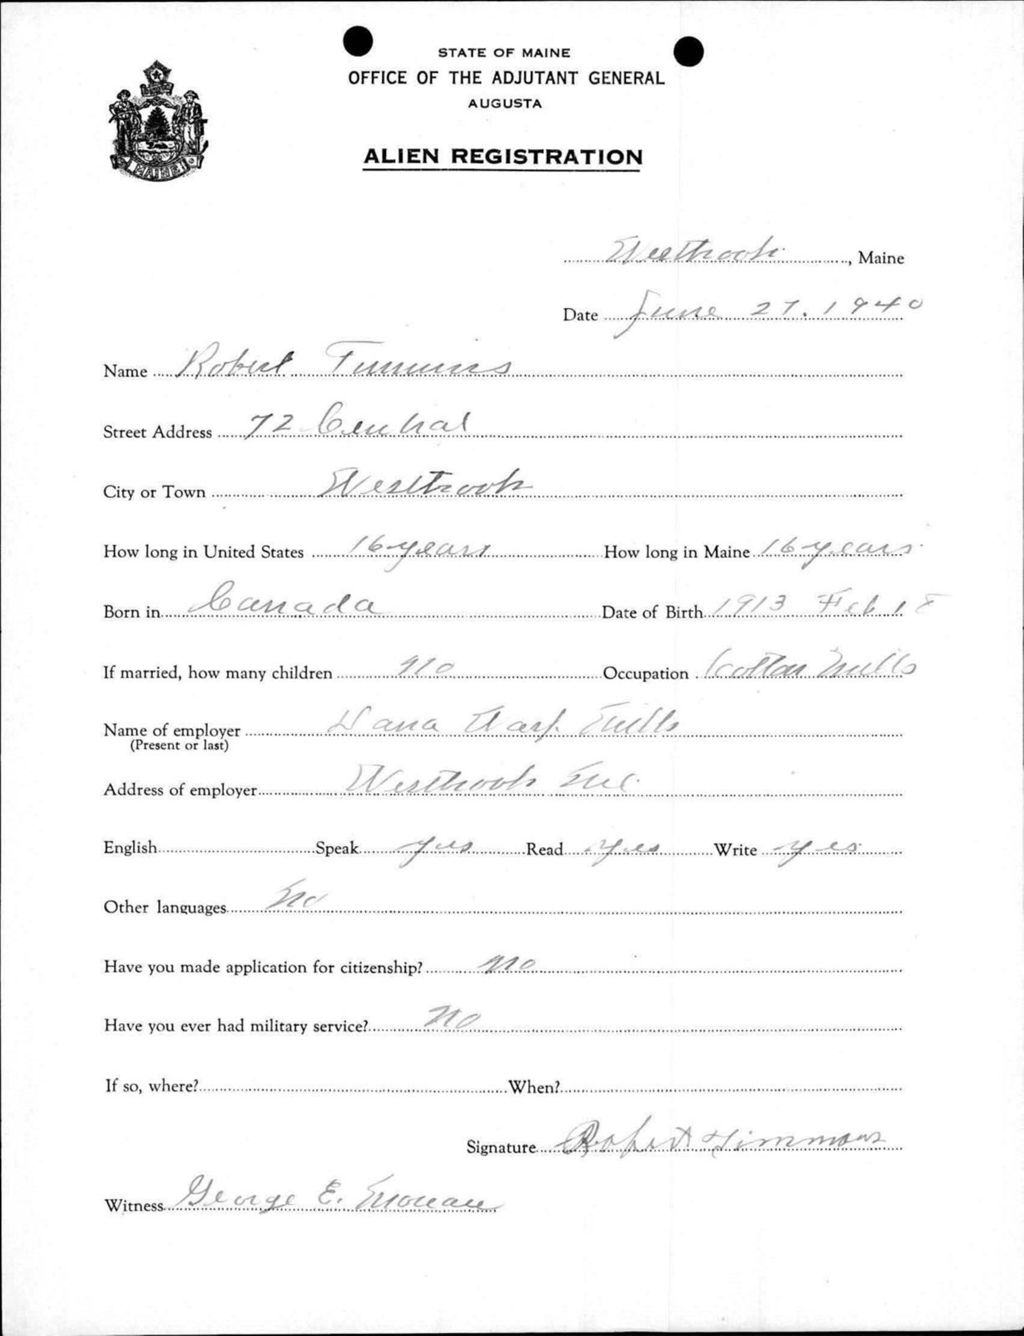 STATE OF MAINE
OFFICE OF THE ADJUTANT GENERAL
AUGUSTA
ALIEN REGISTRATION
MAINE
Westbrook, Maine
Date June 27. 1940
Name Robert Timmins
Street Address 72 Central
City or Town Westbrook
How long in United States 16 years How long in Maine 16 years
Born in Canada Date of Birth 1913 Feb 18
If married, how many children no Occupation Cotton Mills
Name of employer Dana Warp Mills
(Present or last)
Address of employer Westbrook Me.
English Speak yes Read yes Write yes
Other languages no
Have you made application for citizenship? no
Have you ever had military service? no
If so, where? When?
Signature Robert Timmons
Witness George E.